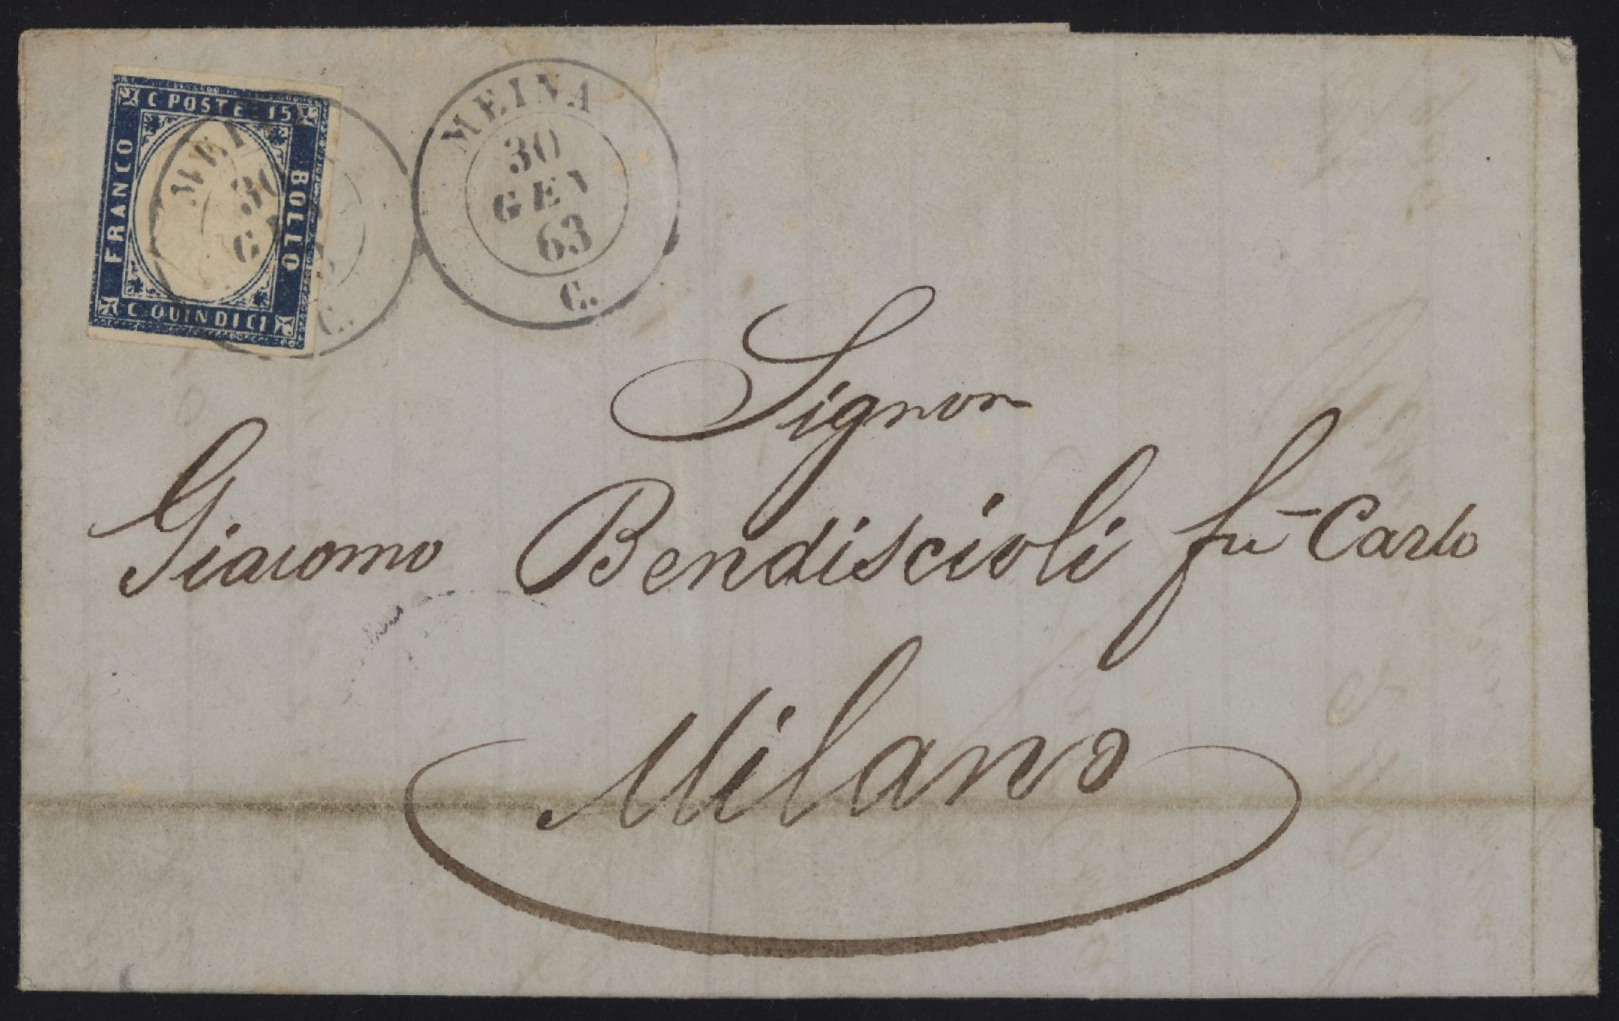 C POSTE 15
FRANCO
BOLLO
C QUINDICI
MEINA
30
GEN
63
C.
Signor
Giacomo Bendiscioli fu Carlo
Milano